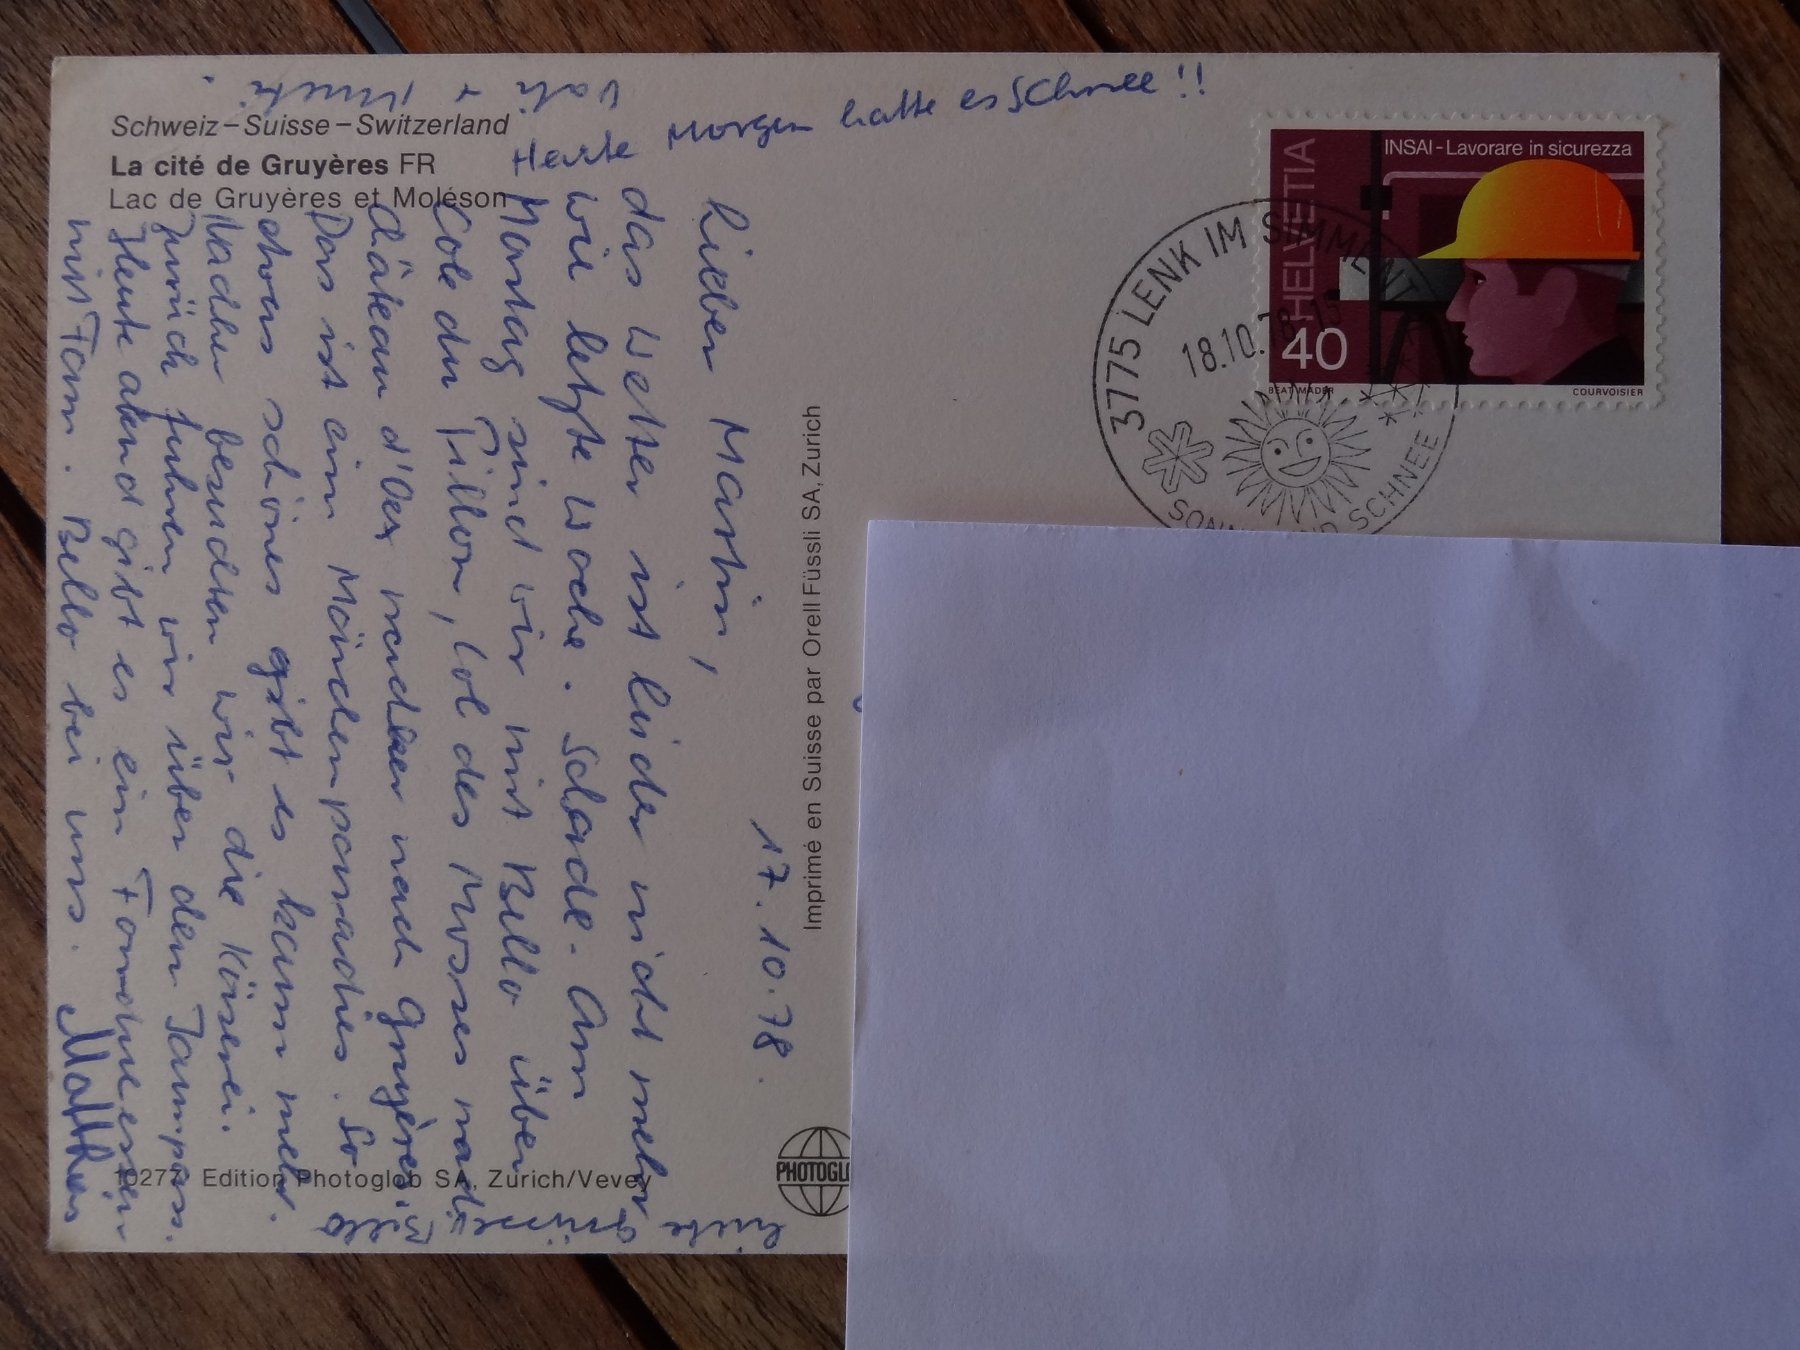 Schweiz – Suisse – Switzerland
La cité de Gruyères FR
Lac de Gruyères et Moléson
Heute Morgen hatte es Schnee!!
17. 10. 78.
Lieber Martin,
das Wetter ist leider nicht mehr
wie letzte Woche. Schade. Am
Montag sind wir mit Bello über
Cole du Pillon, Col des Mosses nach
Château d'Oex nachher nach Gruyères.
Das ist ein Märchenparadies. So
etwas schönes gibt es kaum mehr.
Nachher besuchten wir die Käserei.
Zurück fuhren wir über den Jaunpass.
Heute abend gibt es ein Fondueessen
mit Fam. Bello bei uns.
Matthias
Liebe
Grüsse
Bello
Vati +
Imprimé en Suisse par Orell Füssli SA, Zurich
Edition Photoglob SA, Zürich/Vevey
PHOTOGLO
HELVETIA
INSAI - Lavorare in sicurezza
40
BEAT MÄDER
COURVOISIER
3775 LENK IM SIMMENT
18.10.78-15
SONNE UND SCHNEE